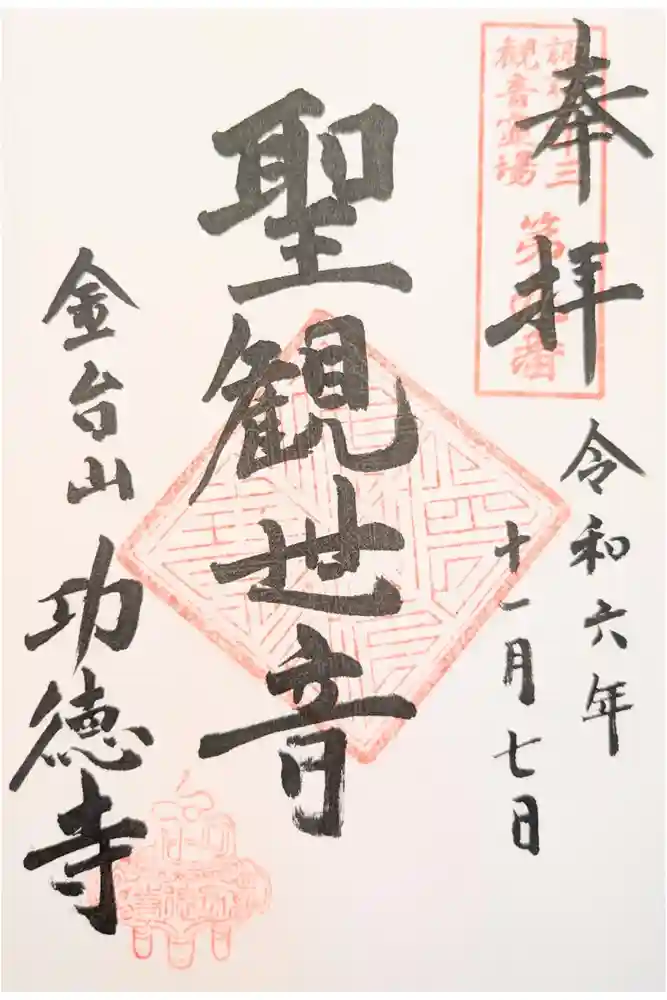 奉拝
観音霊場
令和六年
十一月七日
聖観世音
金台山
功徳寺